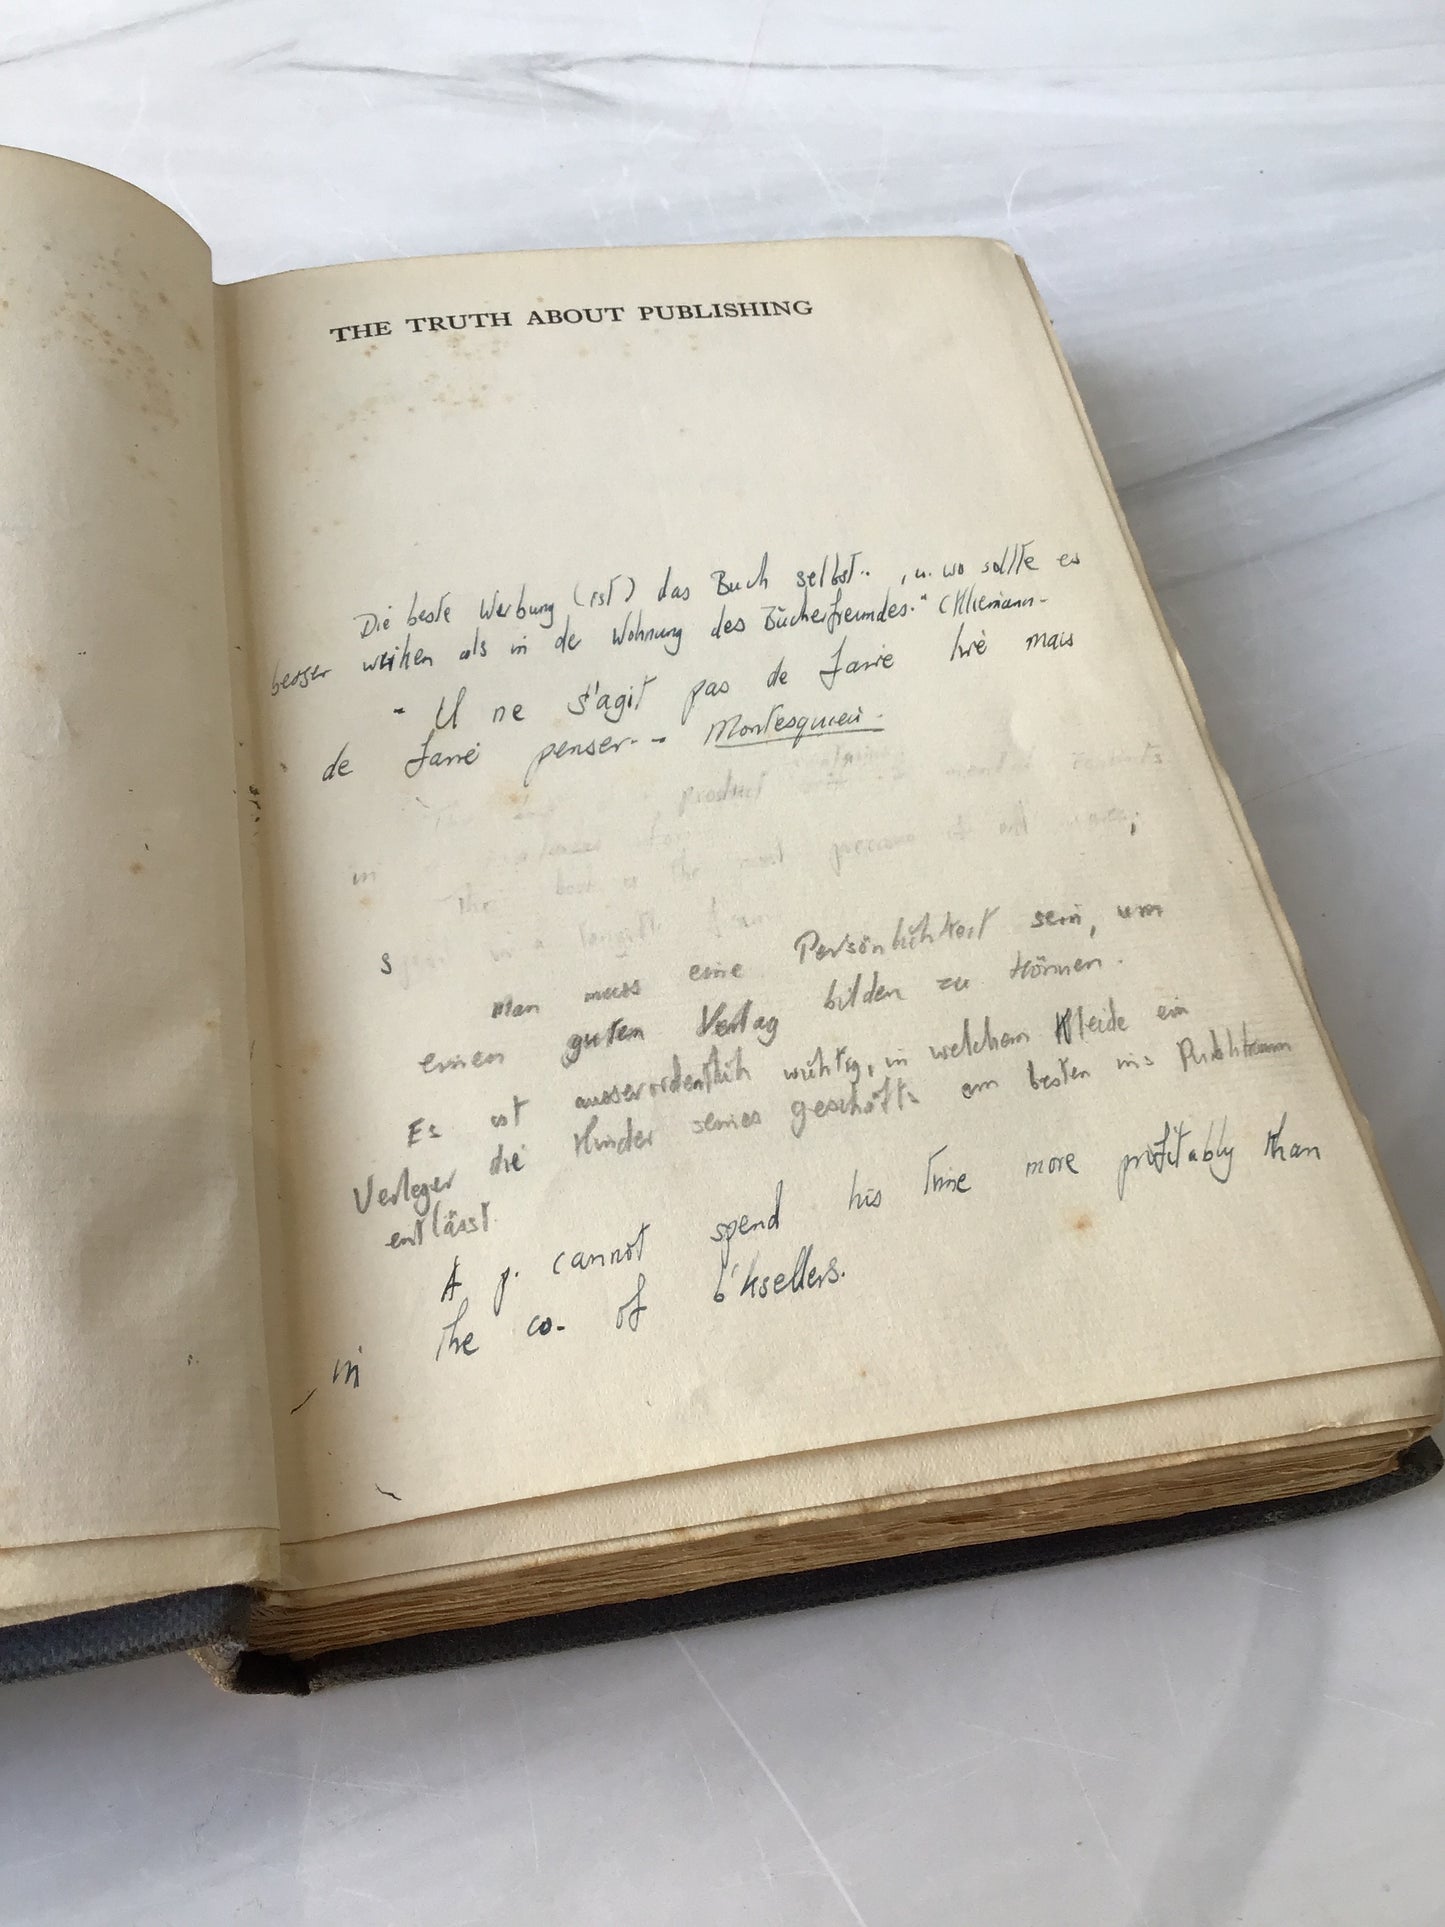 THE TRUTH ABOUT PUBLISHING
Die beste Werbung (ist) das Buch selbst.. , u. wo sollte es
besser wirken als in der Wohnung des Bücherfreundes." (Kliemann-
- Il ne s'agit pas de faire lire mais
de faire penser - - Montesquieu -
product mental
in
The book is the most precious of
s in a
Man muss eine Persönlichkeit sein, um
einen guten Verlag bilden zu können.
Es ist ausserordentlich wichtig, in welchem Kleide ein
Verleger die Kinder seines geschäfts am besten ins Publikum
entlässt.
A p. cannot spend his time more profitably than
in the co. of b'ksellers.